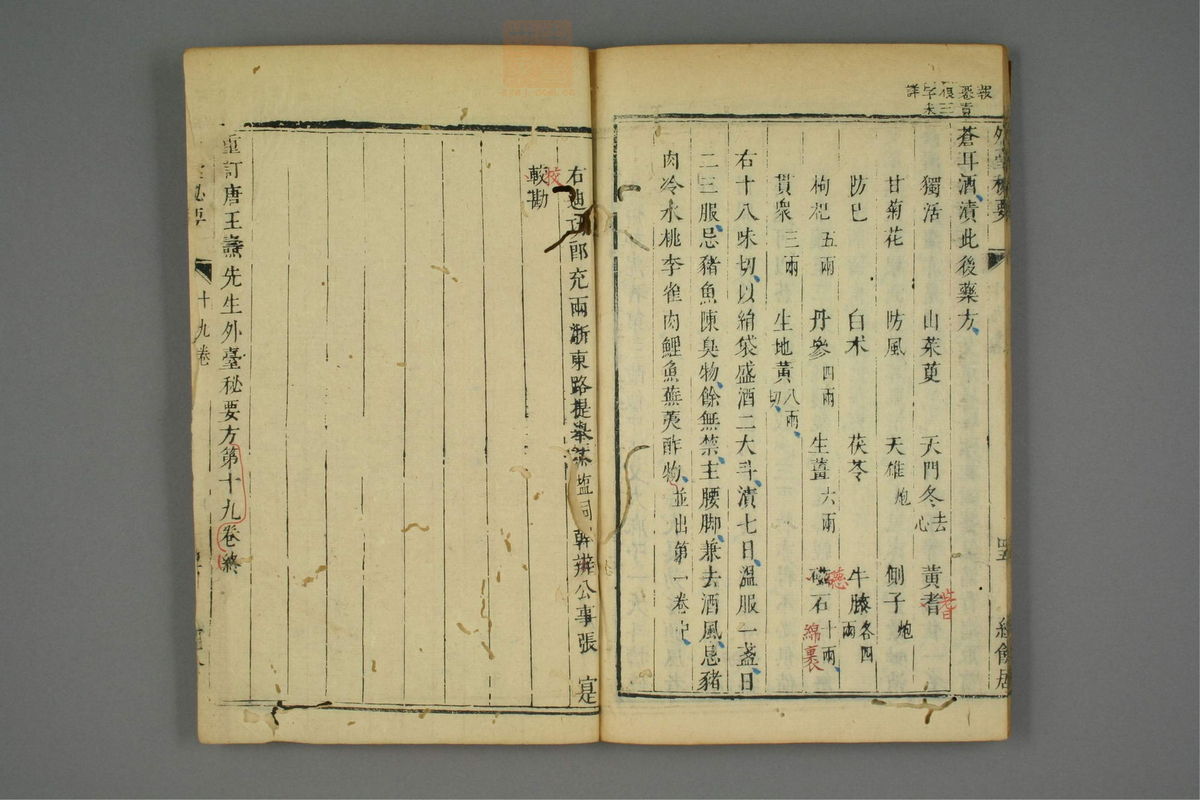 外臺秘要
蒼耳酒漬此後藥方
獨活 山茱萸 天門冬去心 黃耆
甘菊花 防風 天雄炮 側子炮
防巳 白朮 茯苓 牛膝各四兩
枸杞五兩 丹參四兩 生薑六兩 石十兩 綿裹
貫衆三兩 生地黃八兩切
右十八味切以絹袋盛酒二大斗漬七日溫服一盞日
二三服忌豬魚陳臭物餘無禁主腰脚兼去酒風忌豬
肉冷水桃李雀肉鯉魚蕪荑酢物並出第一卷中
右迪功郎充兩浙東路提舉茶鹽司幹辦公事張 寔
校
較勘
重訂唐王燾先生外臺秘要方第十九卷終
秘要
十九卷